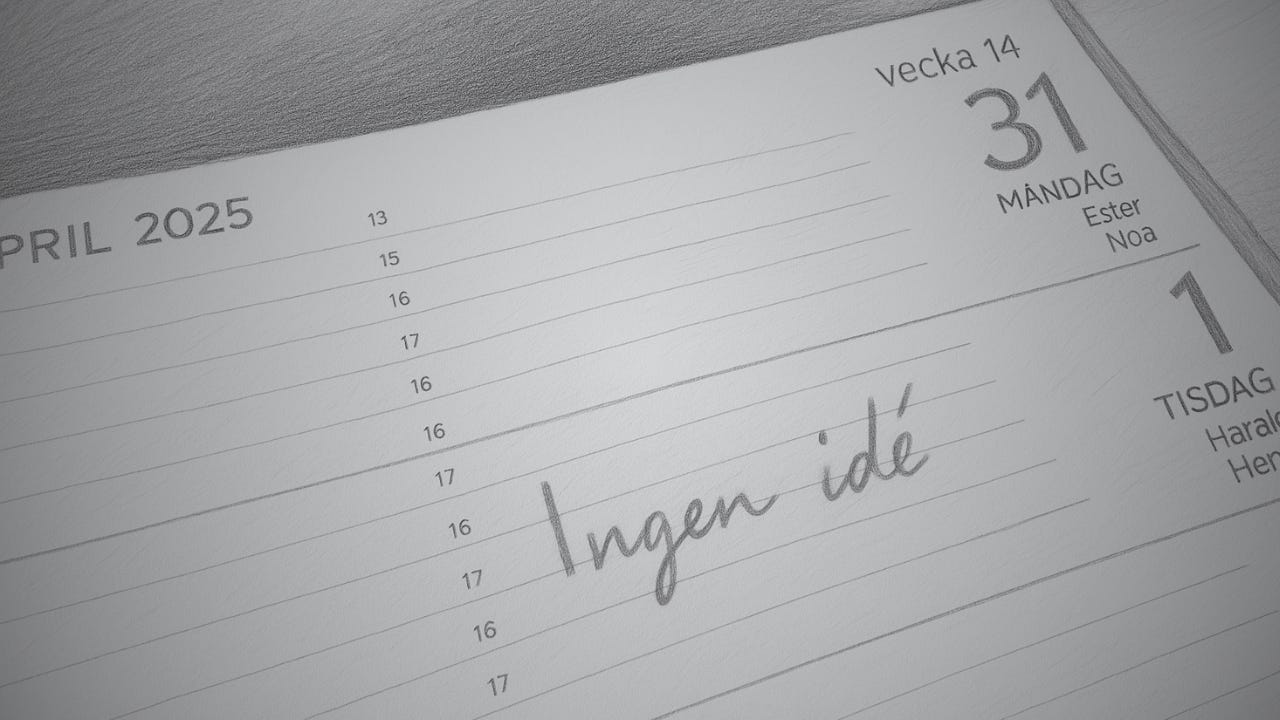 vecka 14
31
MÅNDAG
Ester
Noa
PRIL 2025
13
15
16
17
16
16
1
TISDAG
17
16
17
16
17
Ingen idé